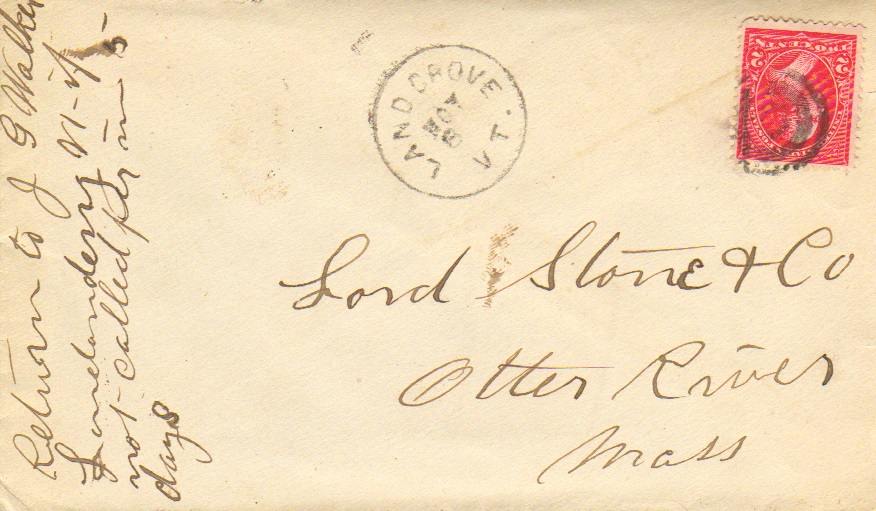 Return to J G Walker
Londonderry Vt if
not called for in 5
days
LANDGROVE
NOV
8
VT.
2 2
Lord Stone & Co
Otter River
Mass